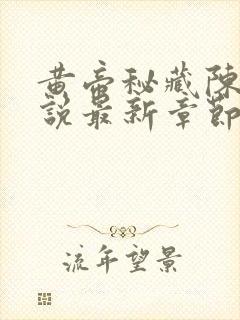 黄帝秘藏陳
說最新章節
流年望景